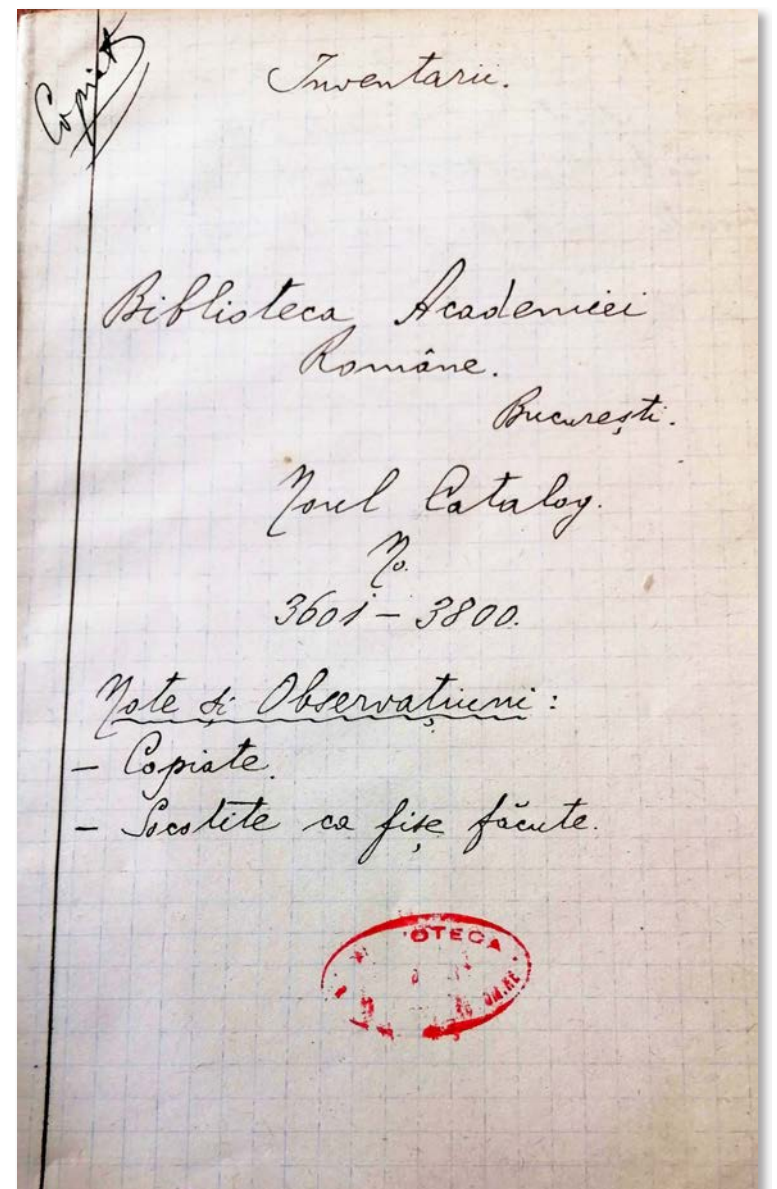 Copiat
Inventarii.
Biblioteca Academiei
Române.
București.
Noul Catalog.
No.
3601 – 3800.
Note și Observațiuni :
– Copiate.
– Socotite ca fișe făcute.
OTECA